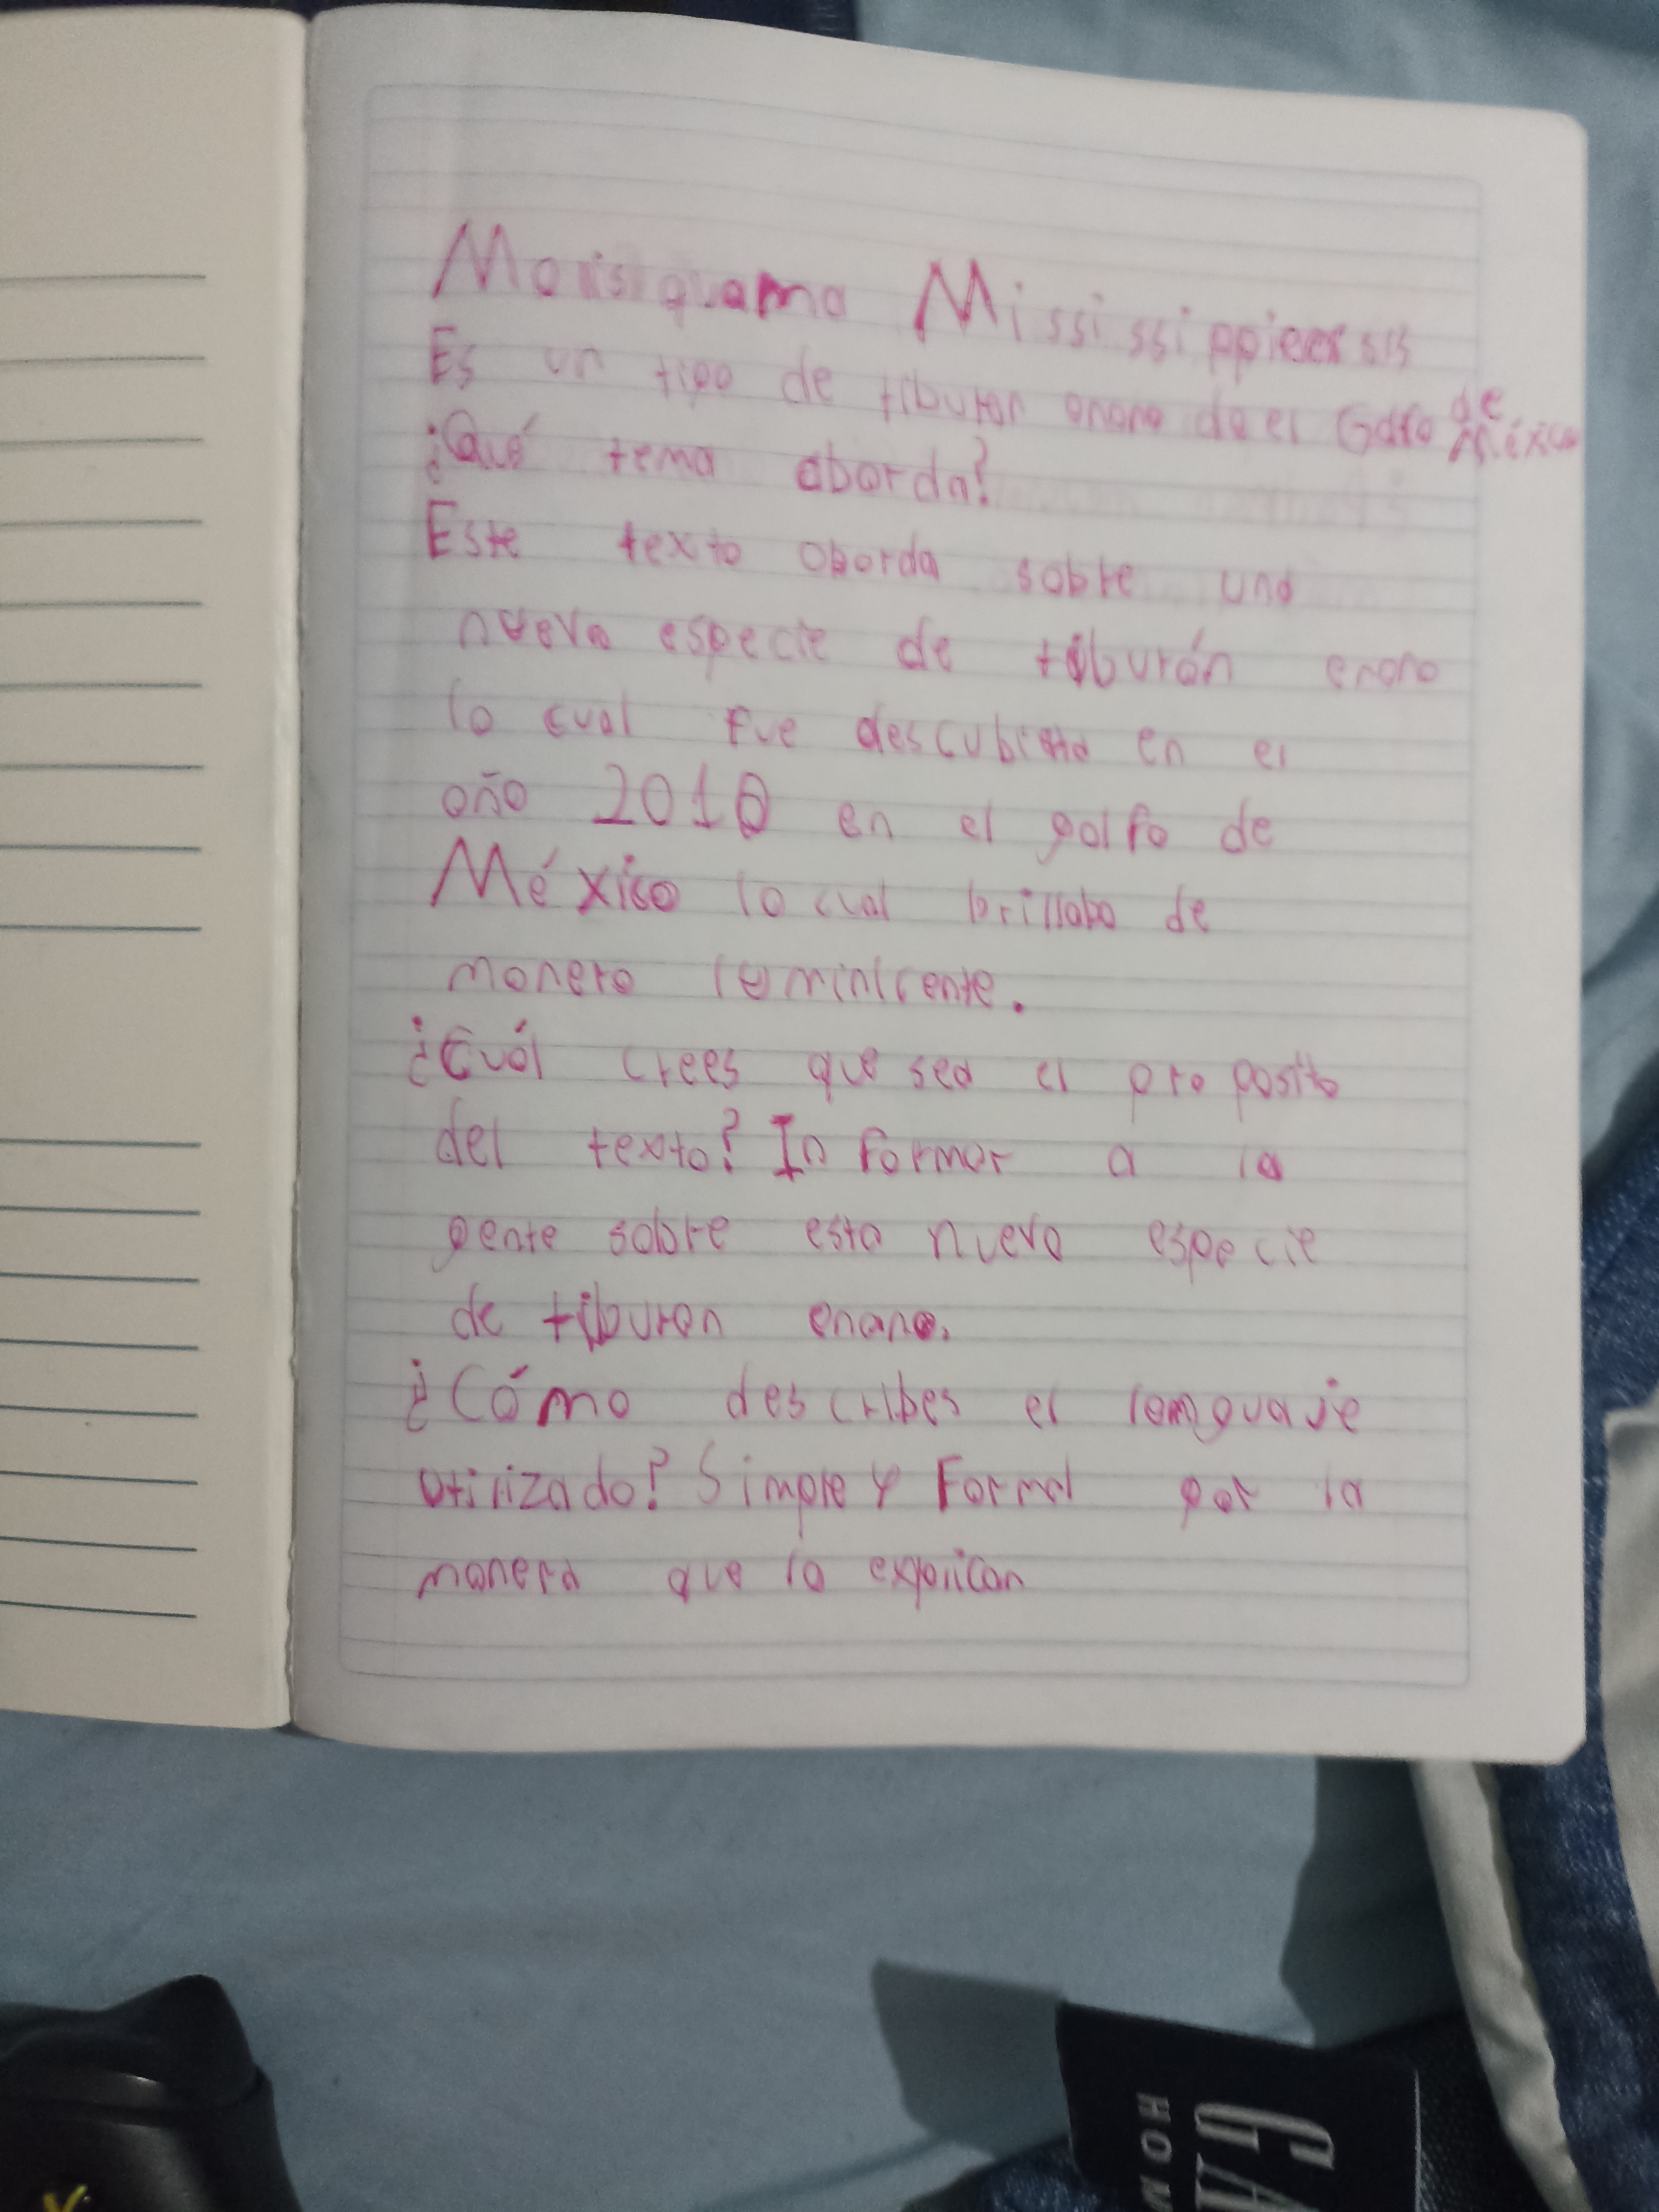 Molisquama Mississippiensis
Es un tipo de tiburon enano de el Golfo de México
¿Qué tema aborda?
Este texto aborda sobre una
nueva especie de tiburón enano
lo cual fue descubierta en el
año 2010 en el golfo de
México lo cual brillaba de
manera
¿Cuál crees que sea el proposito
del texto? Informar a la
gente sobre esta nueva especie
de tiburon enano.
¿Cómo describes el lenguaje
utilizado? Simple y Formal por la
manera que lo explican
GA
HOM